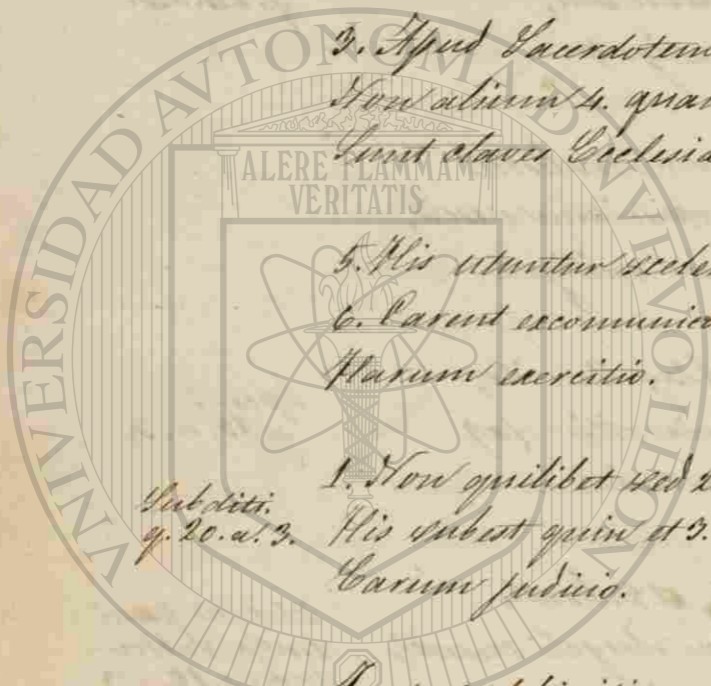 3. Apud Sacerdotem
Non alium 4. quam
Sunt claves Ecclesia
5. His utuntur sceler
6. Carent excomunica
Harum exercitio.
Subditi.
q. 20. a. 3.
1. Non quilibet sed 2.
His subest quin et 3.
Earum judicio.
UNIVERSIDAD AVTONOMA DE NVEVO LEON
ALERE FLAMMAM
VERITATIS